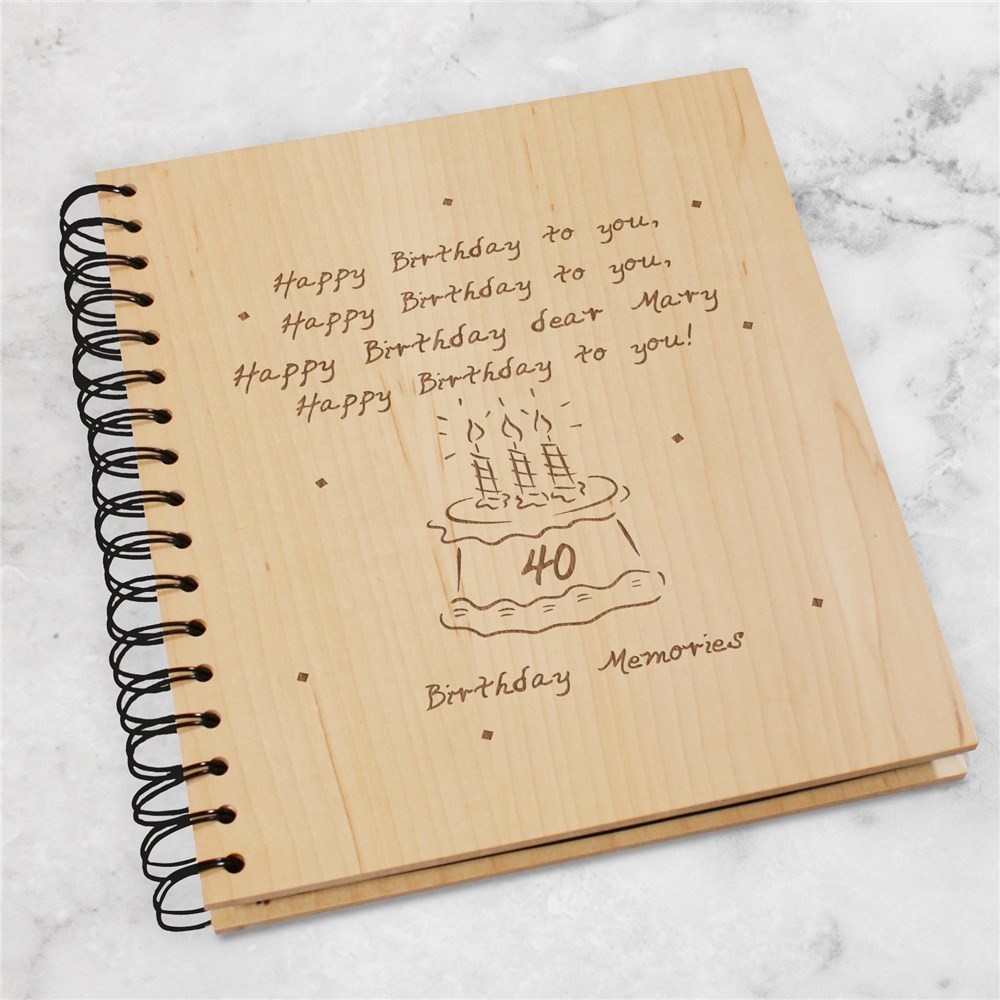 Happy Birthday to you,
Happy Birthday to you,
Happy Birthday dear Mary
Happy Birthday to you!
40
Birthday Memories